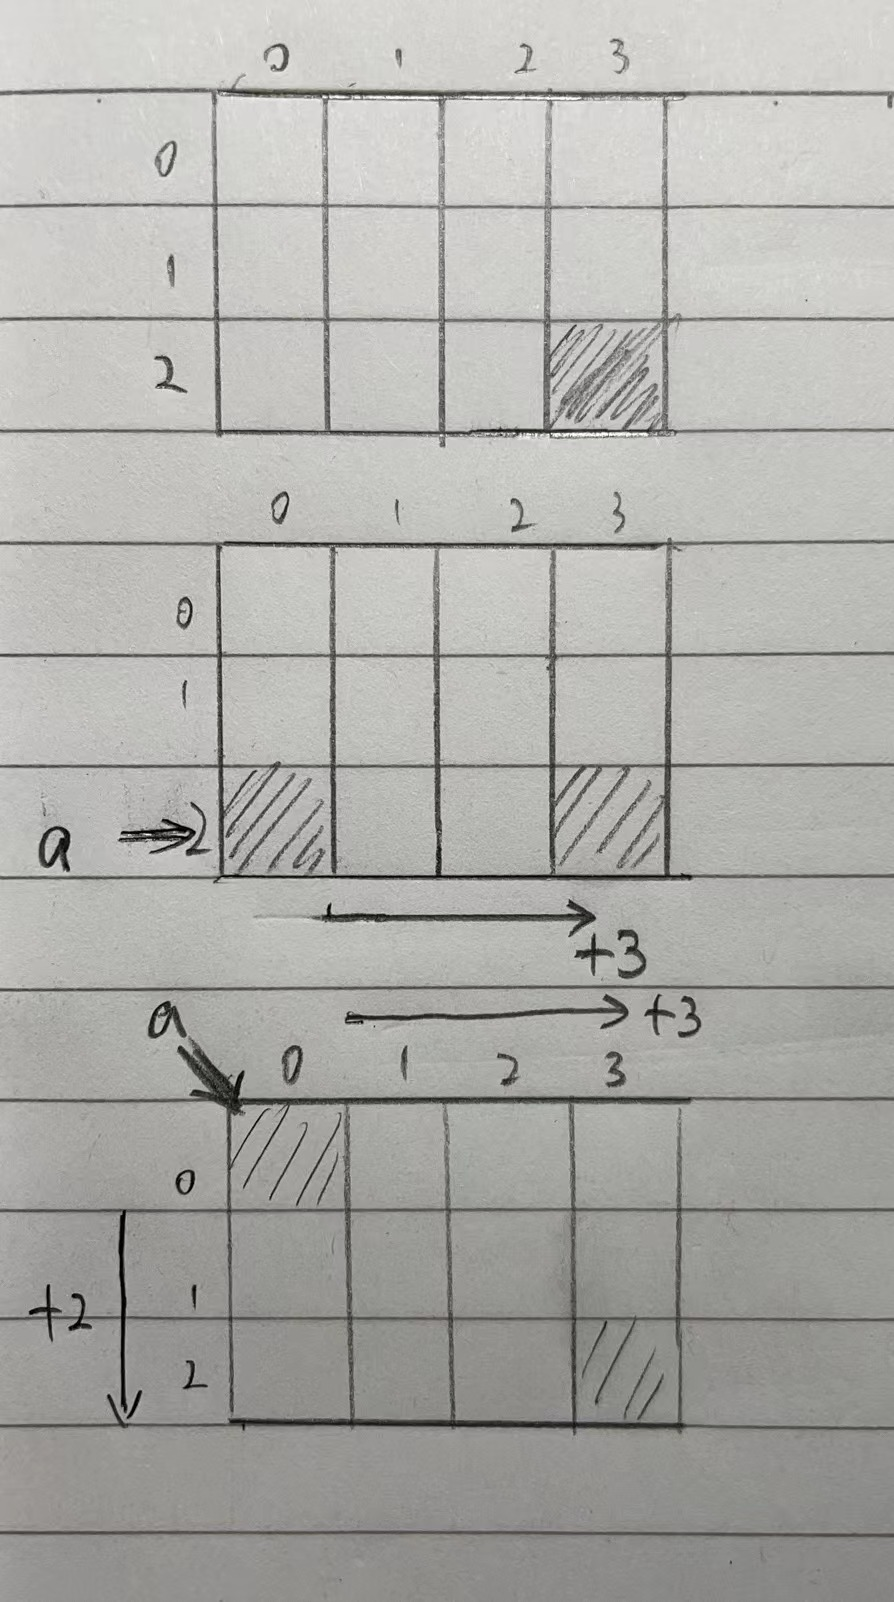 0 1 2 3
0
1
2
0 1 2 3
0
1
a 2
+3
a +3
0 1 2 3
0
+2 1
2